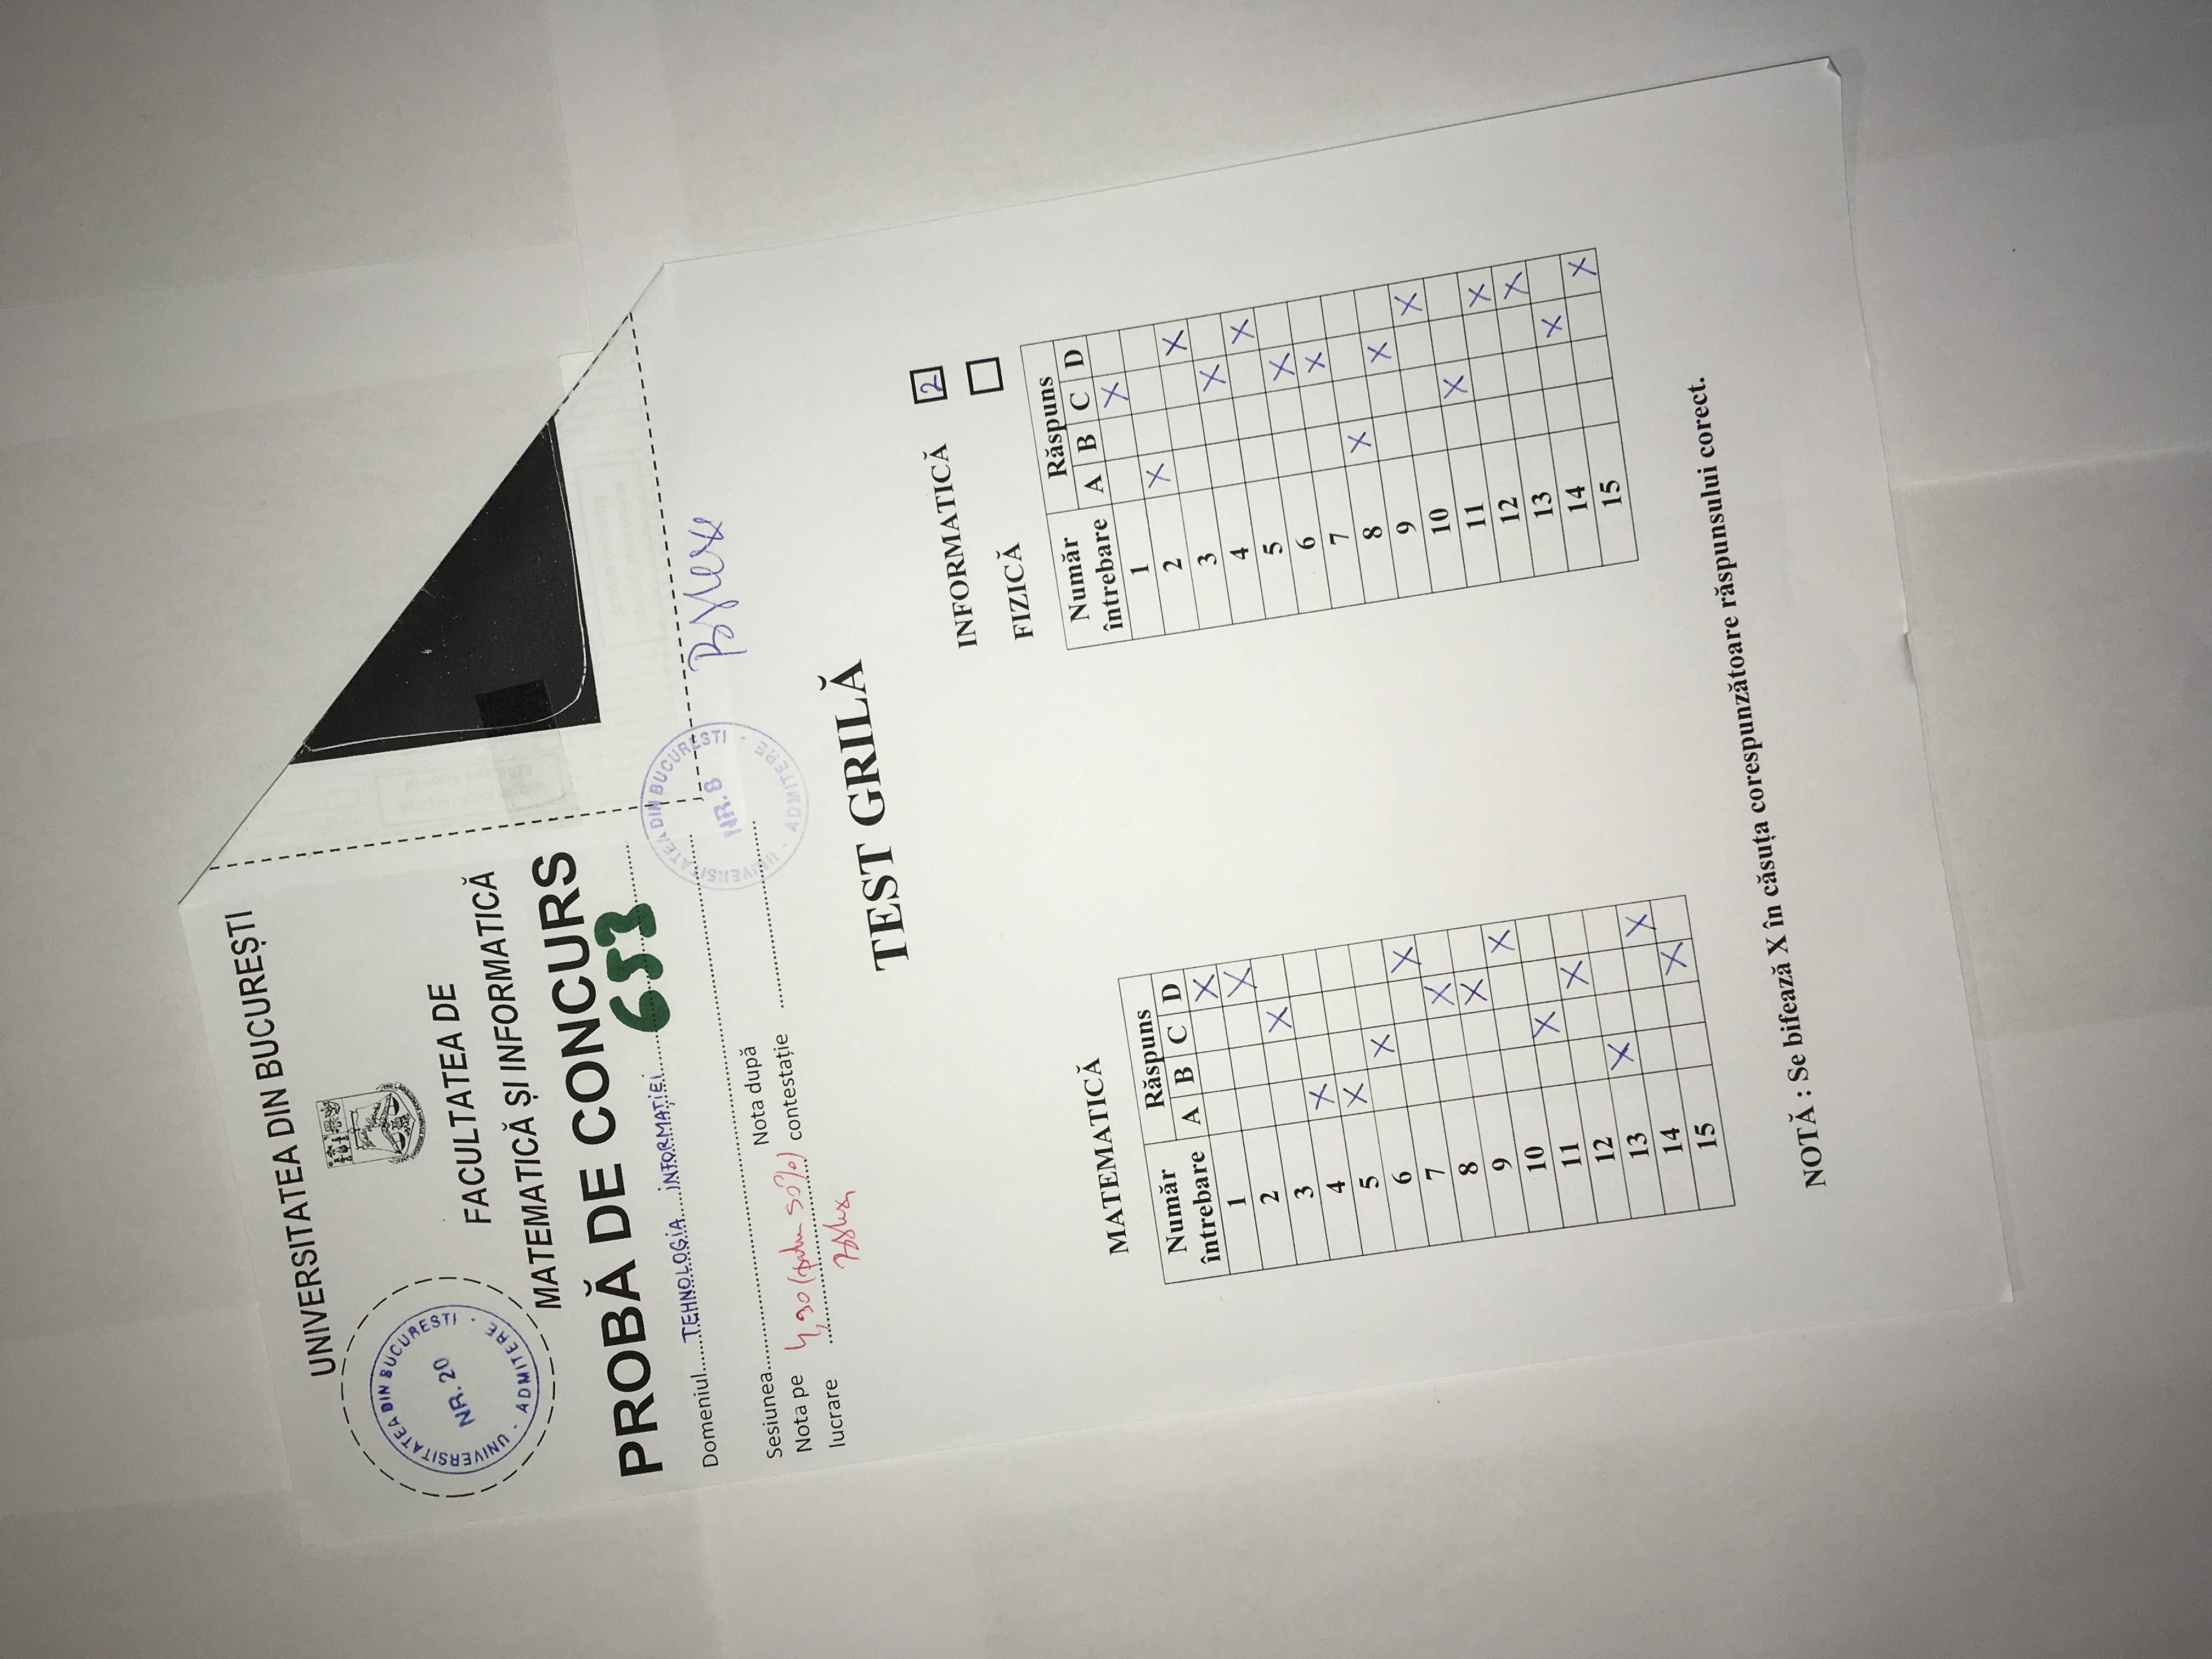 UNIVERSITATEA DIN BUCUREȘTI
UNIVERSITATEA DIN BUCURESTI - ADMITERE -
NR. 20
FACULTATEA DE
MATEMATICĂ ȘI INFORMATICĂ
PROBĂ DE CONCURS
653
Domeniul TEHNOLOGIA INFORMAȚIEI
Sesiunea
Nota pe lucrare 4,90 (pentru 50%)
Nota după contestație
UNIVERSITATEA DIN BUCURESTI - ADMITERE -
NR. 8
TEST GRILĂ
INFORMATICĂ 2
FIZICĂ
MATEMATICĂ
Număr întrebare Răspuns
A B C D
1 X
2 X
3 X
4 X
5 X
6 X
7 X
8 X
9 X
10 X
11 X
12 X
13 X
14 X
15 X
Număr întrebare Răspuns
A B C D
1 X
2 X
3 X
4 X
5 X
6 X
7 X
8 X
9 X
10 X
11 X
12 X
13 X
14 X
15 X
NOTĂ : Se bifează X în căsuța corespunzătoare răspunsului corect.